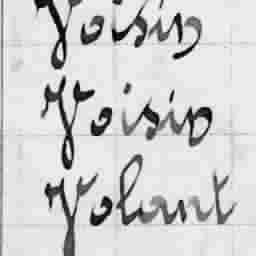 Voisin
Voisin
Volant